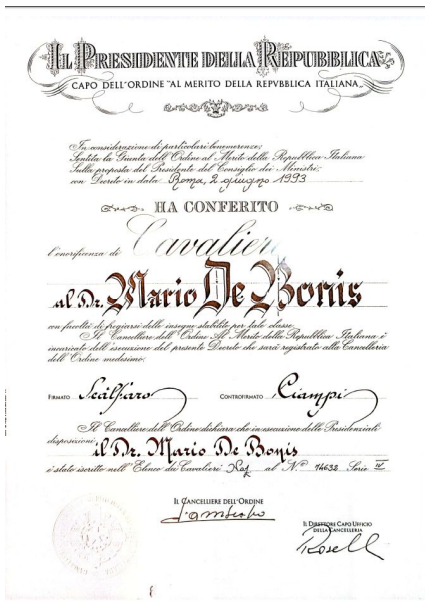 IL PRESIDENTE DELLA REPUBBLICA
CAPO DELL'ORDINE "AL MERITO DELLA REPVBBLICA ITALIANA„
In considerazione di particolari benemerenze;
Sentita la Giunta dell'Ordine al Merito della Repubblica Italiana
Sulla proposta del Presidente del Consiglio dei Ministri;
con Decreto in data Roma, 2 giugno 1993
HA CONFERITO
l'onorificenza di Cavaliere
al Dr. Mario De Bonis
con facoltà di fregiarsi delle insegne stabilite per tale classe.
Il Cancelliere dell'Ordine Al Merito della Repubblica Italiana è
incaricato dell'esecuzione del presente Decreto che sarà registrato alla Cancelleria
dell'Ordine medesimo.
FIRMATO Scalfaro CONTROFIRMATO Ciampi
Il Cancelliere dell'Ordine dichiara che in esecuzione delle Presidenziali
disposizioni il Dr. Mario De Bonis
è stato iscritto nell'Elenco dei Cavalieri Naz. al N° 14632 Serie IV
IL CANCELLIERE DELL'ORDINE
IL DIRETTORE CAPO UFFICIO
DELLA CANCELLERIA